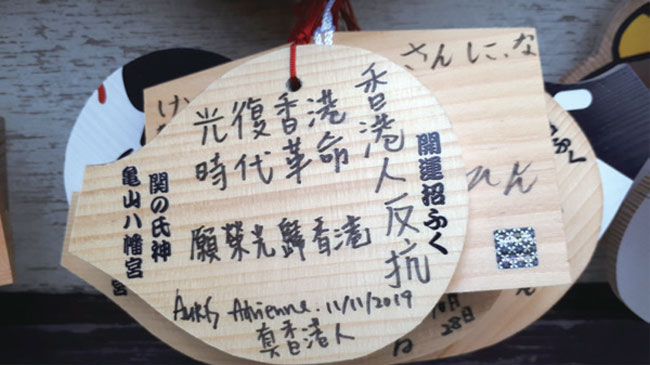 香港人反抗
光復香港
時代革命
願榮光歸香港
Adrienne. 11/11/2019
真香港人
開運招ふく
関の氏神
亀山八幡宮
さんに、な
け
ひん
ふく
10月
28日